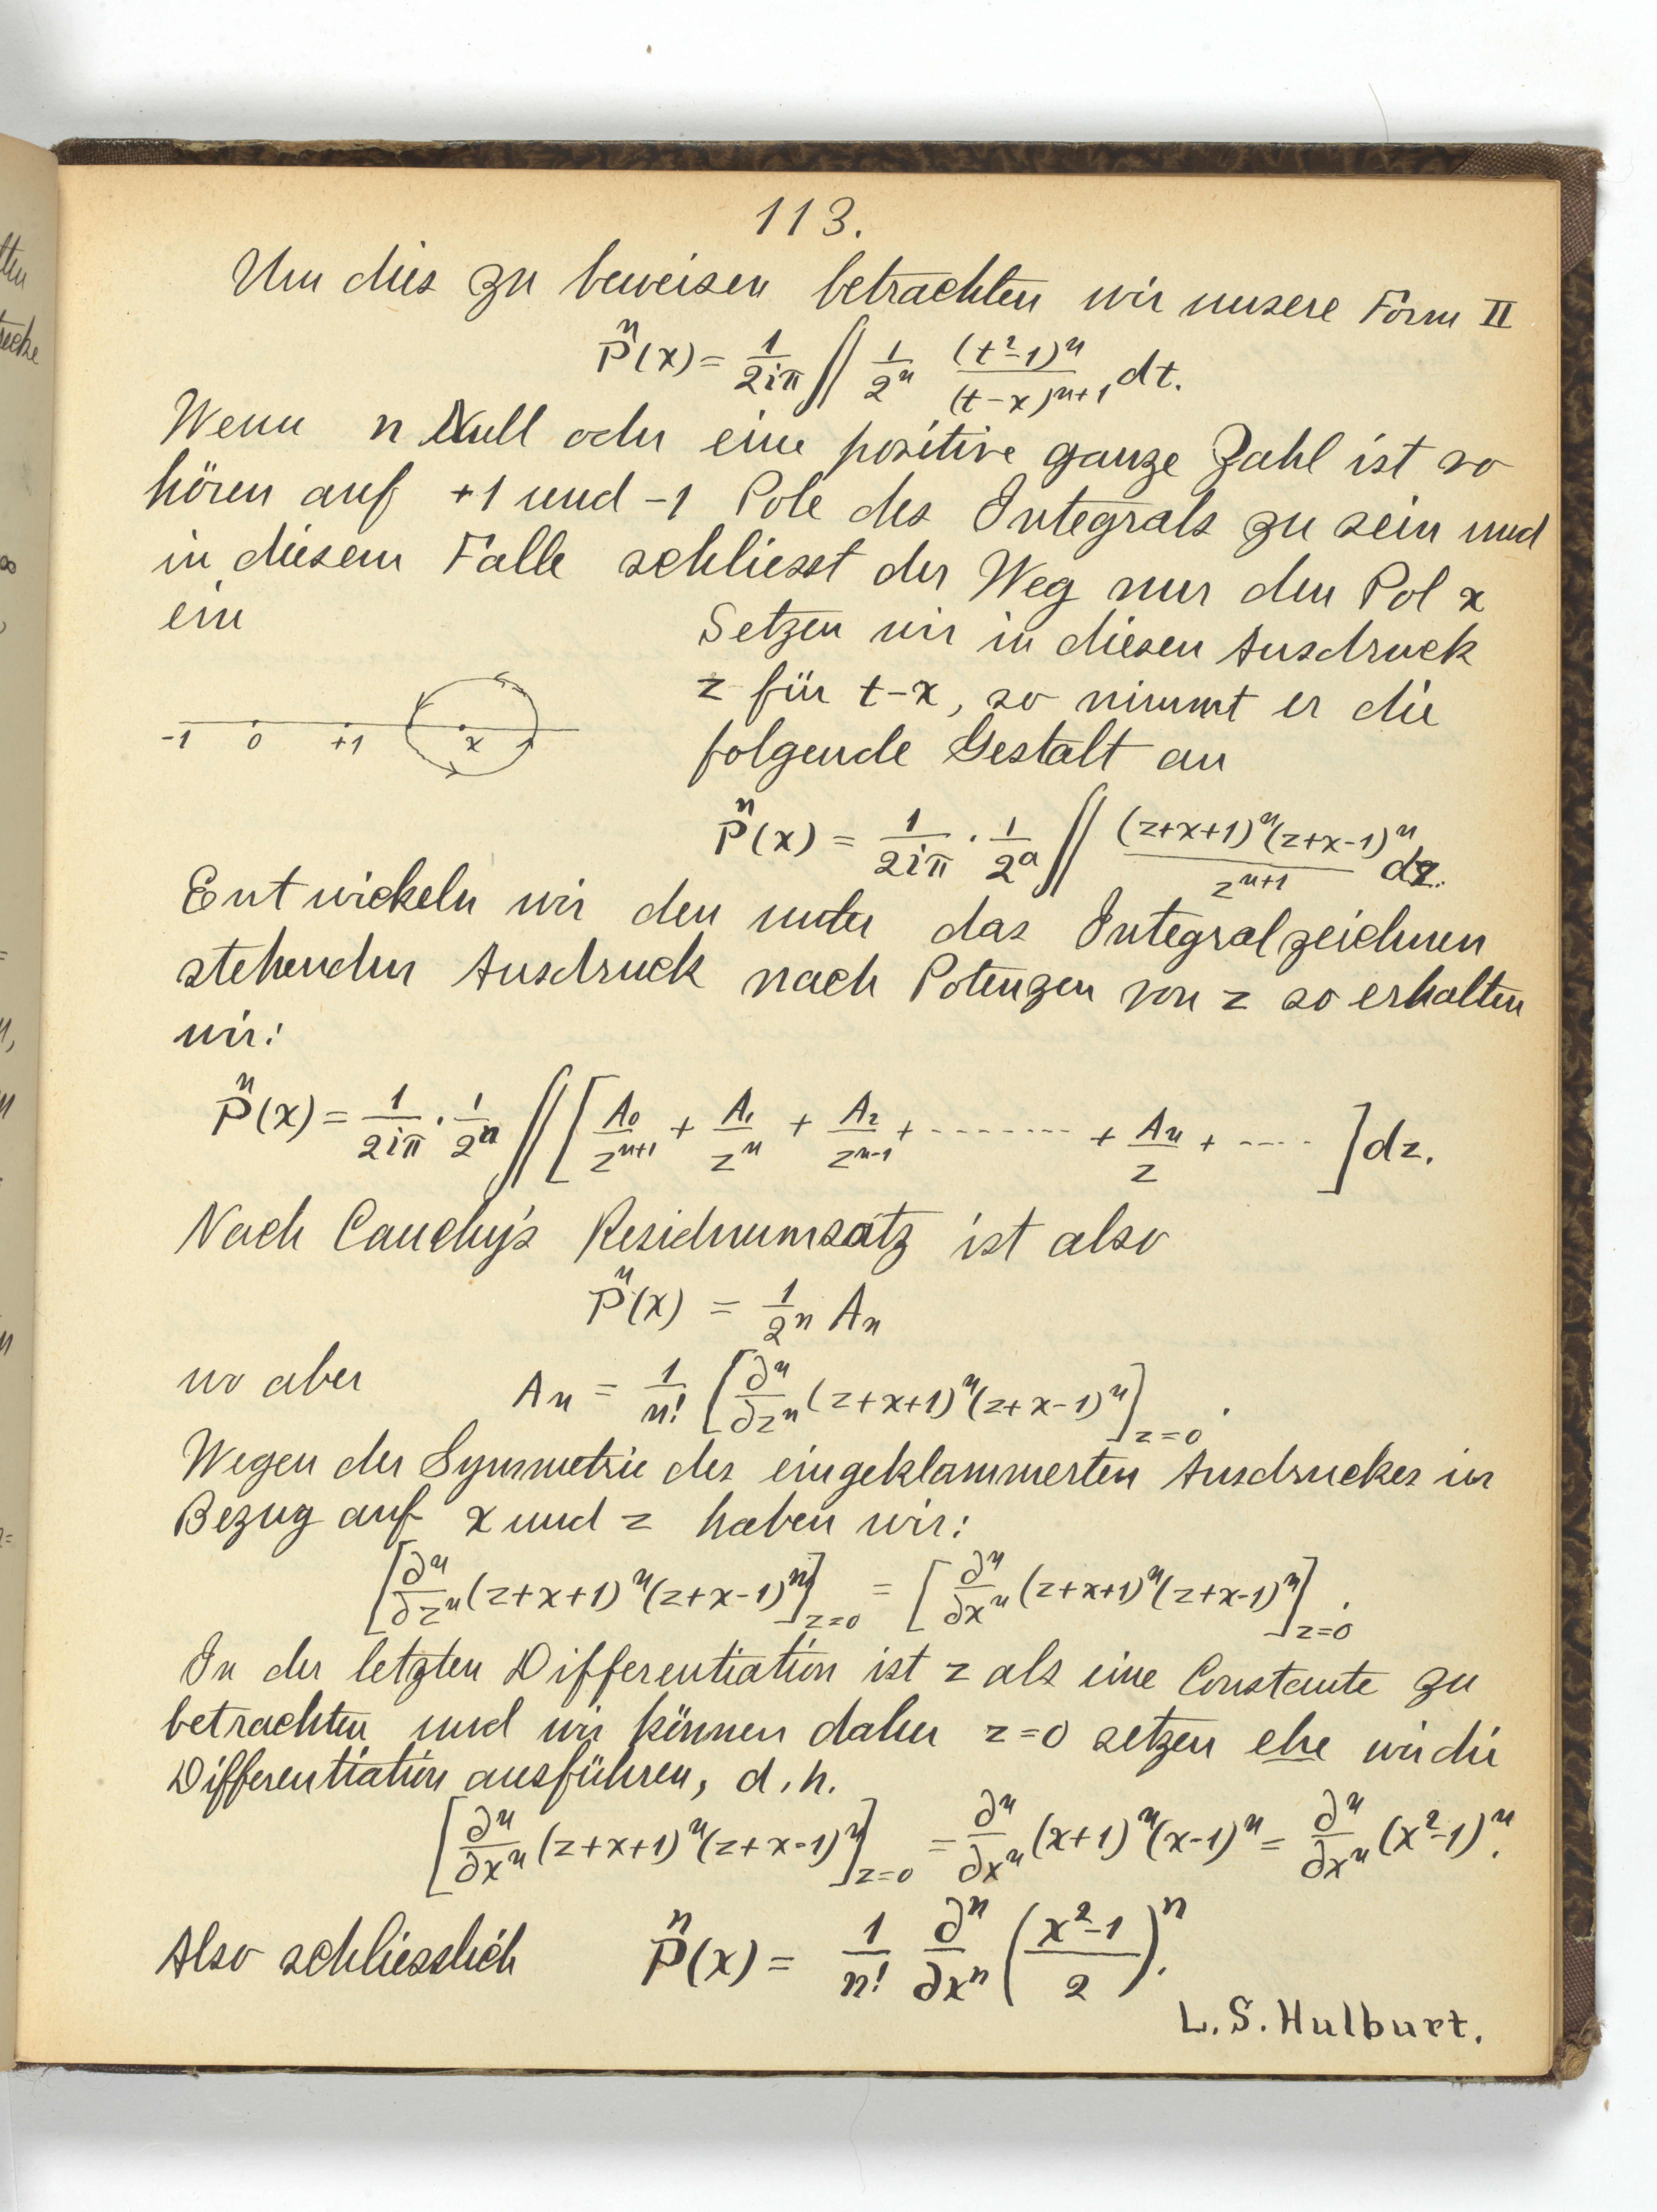 113.
Um dies zu beweisen betrachten wir unsere Form II
P̎ⁿ(x) = 1/2iπ ∬ 1/2ⁿ (t²-1)ⁿ/(t-x)ⁿ⁺¹ dt.
Wenn n Null oder eine positive ganze Zahl ist so
hören auf +1 und -1 Pole des Integrals zu sein und
in diesem Falle schliesst der Weg nur den Pol x
ein
Setzen wir in diesen Ausdruck
z für t-x, so nimmt er die
folgende Gestalt an
-1 0 +1 x
Pⁿ(x) = 1/2iπ · 1/2ⁿ ∬ (z+x+1)ⁿ(z+x-1)ⁿ/zⁿ⁺¹ dz.
Entwickeln wir den unter das Integralzeichnen
stehenden Ausdruck nach Potenzen von z so erhalten
wir:
Pⁿ(x) = 1/2iπ · 1/2ⁿ ∬ [A₀/zⁿ⁺¹ + A₁/zⁿ + A₂/zⁿ⁻¹ + -------- + Aₙ/z + ---- ] dz.
Nach Cauchy's Residuumsatz ist also
Pⁿ(x) = 1/2ⁿ Aₙ
wo aber Aₙ = 1/n! [∂ⁿ/∂zⁿ (z+x+1)ⁿ(z+x-1)ⁿ]z=0.
Wegen der Symmetrie des eingeklammerten Ausdruckes in
Bezug auf x und z haben wir:
[∂ⁿ/∂zⁿ (z+x+1)ⁿ(z+x-1)ⁿ]z=0 = [∂ⁿ/∂xⁿ (z+x+1)ⁿ(z+x-1)ⁿ]z=0.
In der letzten Differentiation ist z als eine Constante zu
betrachten und wir können daher z=0 setzen ehe wir die
Differentiation ausführen, d.h.
[∂ⁿ/∂xⁿ (z+x+1)ⁿ(z+x-1)ⁿ]z=0 = ∂ⁿ/∂xⁿ (x+1)ⁿ(x-1)ⁿ = ∂ⁿ/∂xⁿ (x²-1)ⁿ.
Also schliesslich Pⁿ(x) = 1/n! ∂ⁿ/∂xⁿ (x²-1/2)ⁿ.
L.S. Hulburt.